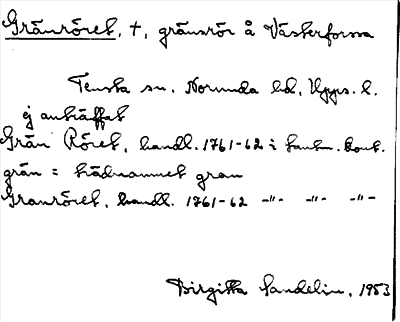 Gränröret, +, gränsrör å Västerforssa
Tensta sn. Norunda hd, Upps. l.
ej anträffat
Grän Röret, handl. 1761-62 i lantm. kont.
grän = trädnamnet gran
Granröret, handl. 1761-62 -"- -"- -"-
Birgitta Sandelin, 1953